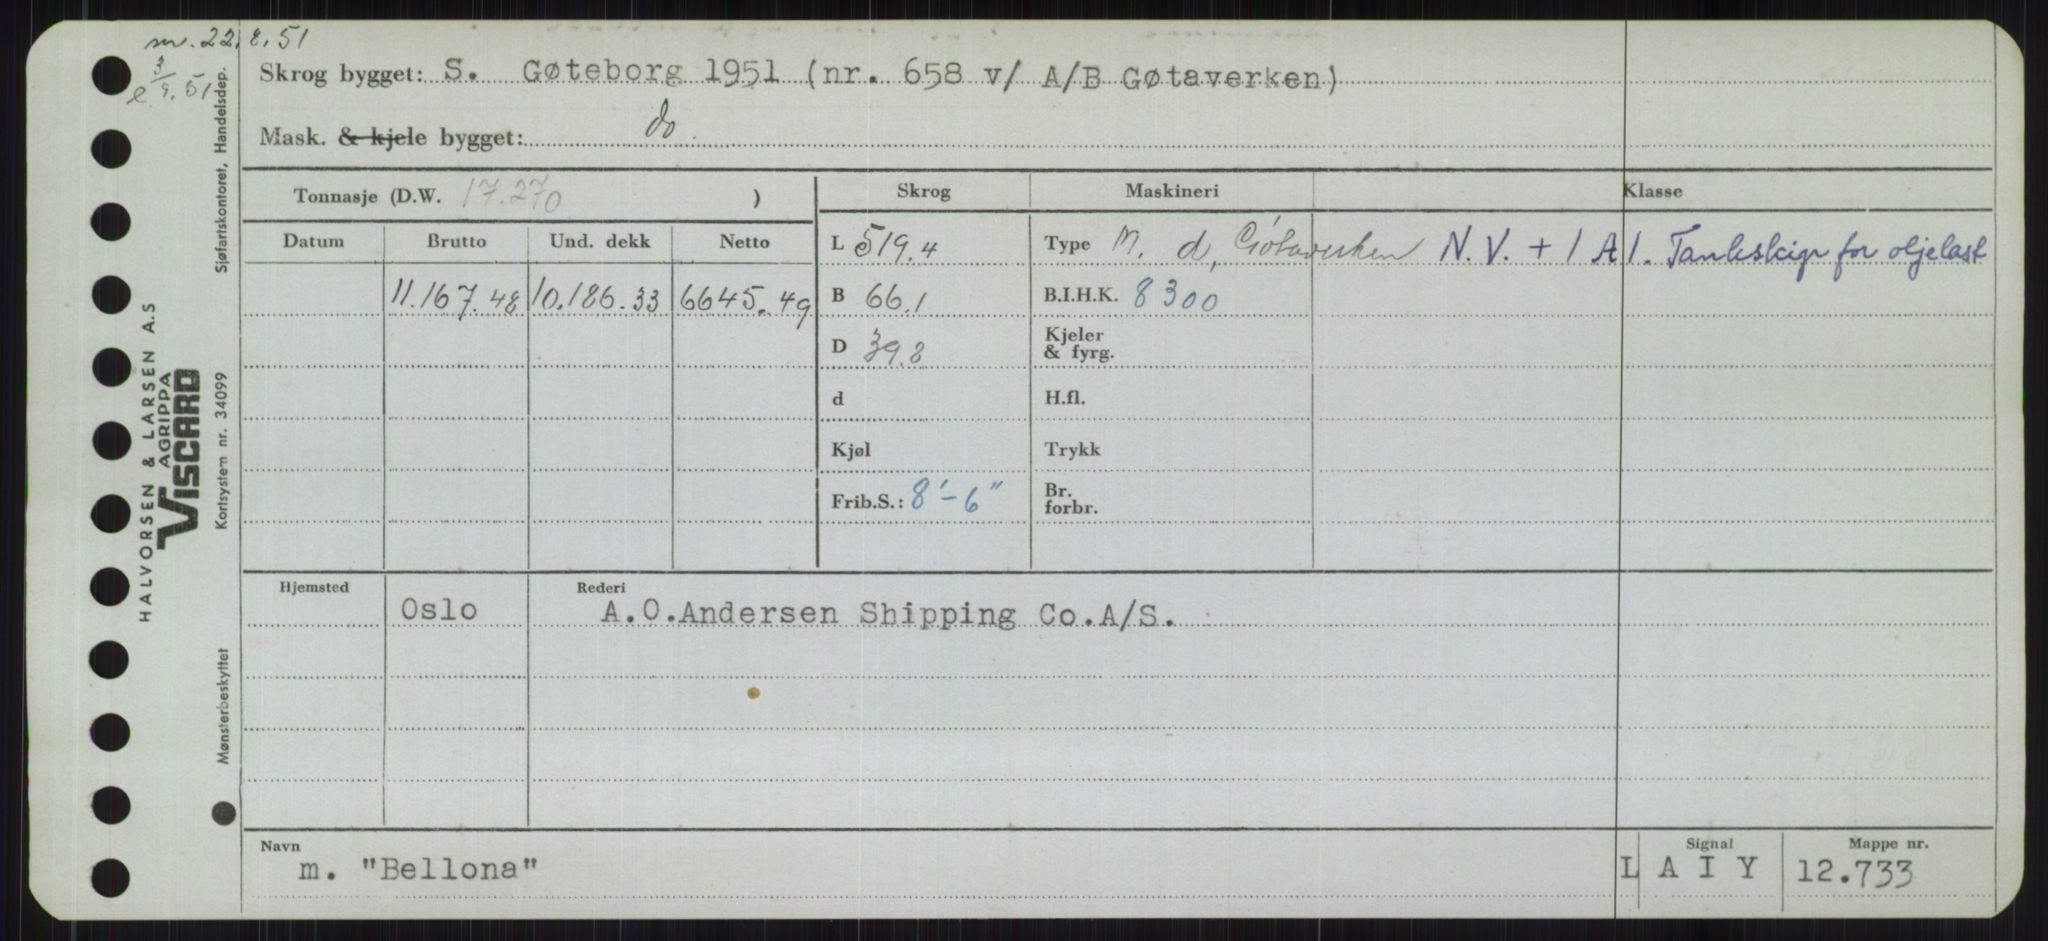 m. 22.8.51
3/9.51
Skrog bygget: S. Gøteborg 1951 (nr. 658 v/ A/B Gøtaverken)
Mask. & kjele bygget: do.
Tonnasje (D.W. 17.270 )
Skrog Maskineri Klasse
Datum Brutto Und. dekk Netto
L 519.4 Type M. d. Götaverken N.V. + 1 A 1. Tankskip for oljelast
11.167.48 10.186.33 6645.49 B 66.1 B.I.H.K. 8300
D 39.8 Kjeler
& fyrg.
d H.fl.
Kjøl Trykk
Frib.S.: 8'-6" Br.
forbr.
Hjemsted Rederi
Oslo A.O.Andersen Shipping Co.A/S.
Navn Signal Mappe nr.
m. "Bellona" L A I Y 12.733
HALVORSEN & LARSEN A.S
AGRIPPA
VISCARD
Mønsterbeskyttet Kortsystem nr. 34099 Sjøfartskontoret, Handelsdep.